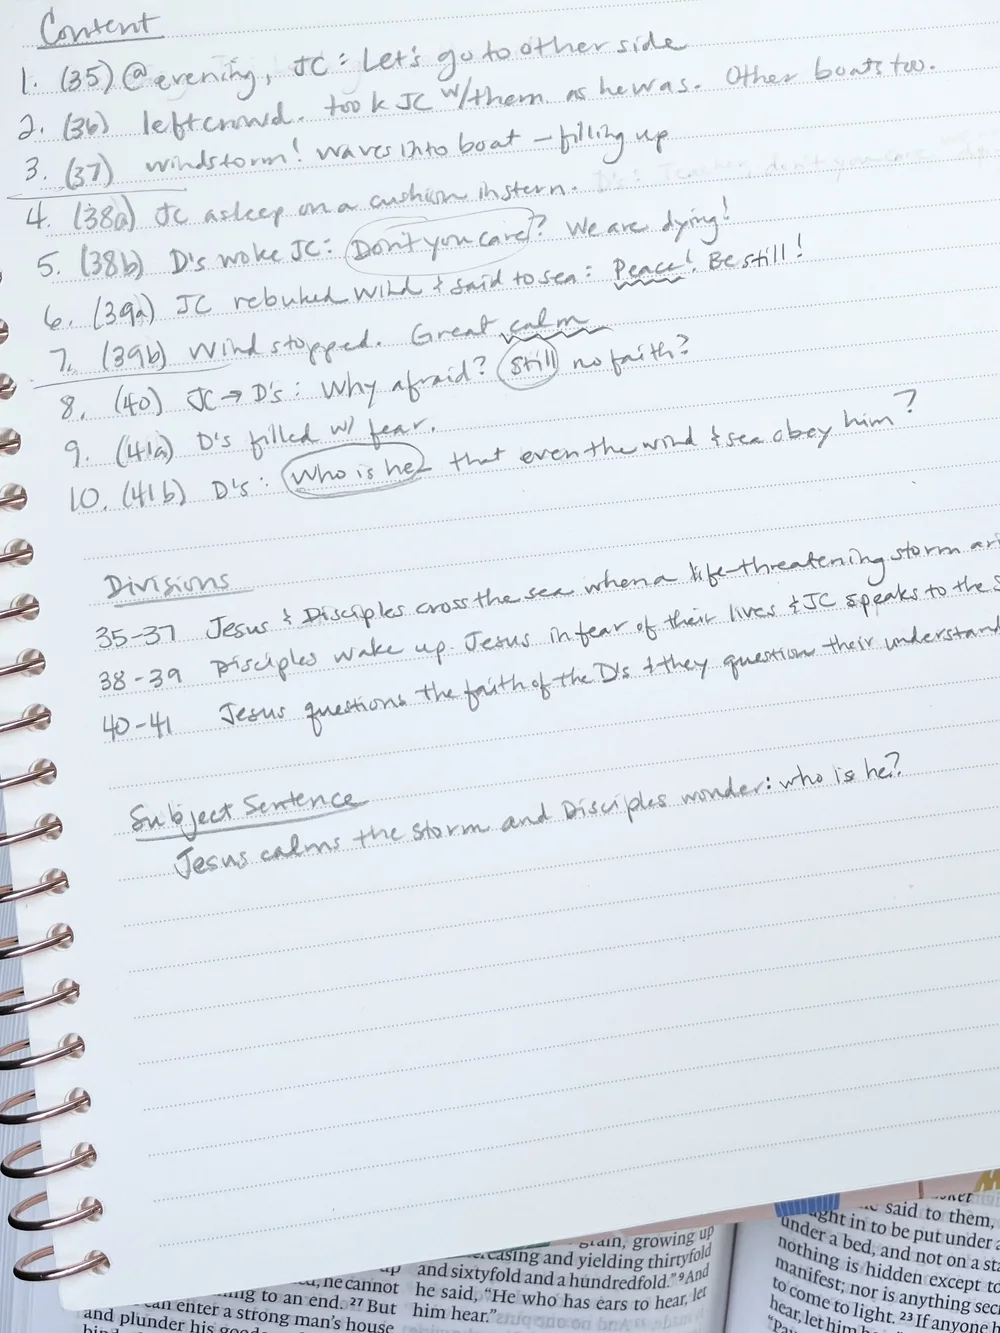 Content
1. (35) @ evening, JC: Let's go to other side
2. (36) left crowd. took JC w/them as he was. Other boats too.
3. (37) windstorm! waves into boat - filling up
4. (38a) JC asleep on a cushion in stern.
5. (38b) D's woke JC: Don't you care? We are dying!
6. (39a) JC rebuked wind & said to sea: Peace! Be still!
7. (39b) Wind stopped. Great calm
8. (40) JC → D's: Why afraid? Still no faith?
9. (41a) D's filled w/ fear.
10. (41b) D's: Who is he that even the wind & sea obey him?
Divisions
35-37 Jesus & Disciples cross the sea when a life-threatening storm ari
38-39 Disciples wake up Jesus in fear of their lives & JC speaks to the s
40-41 Jesus questions the faith of the D's & they question their understand
Subject Sentence
Jesus calms the storm and Disciples wonder: who is he?
he cannot
to an end. 27 But
enter a strong man's house
and plunder his
growing up
and yielding thirtyfold
and sixtyfold and a hundredfold." 9 And
he said, "He who has ears to hear, let
him hear."
said to them,
in to be put under a
under a bed, and not on a sta
nothing is hidden except to
manifest; nor is anything sec
to come to light. 23 If anyone h
hear, let him